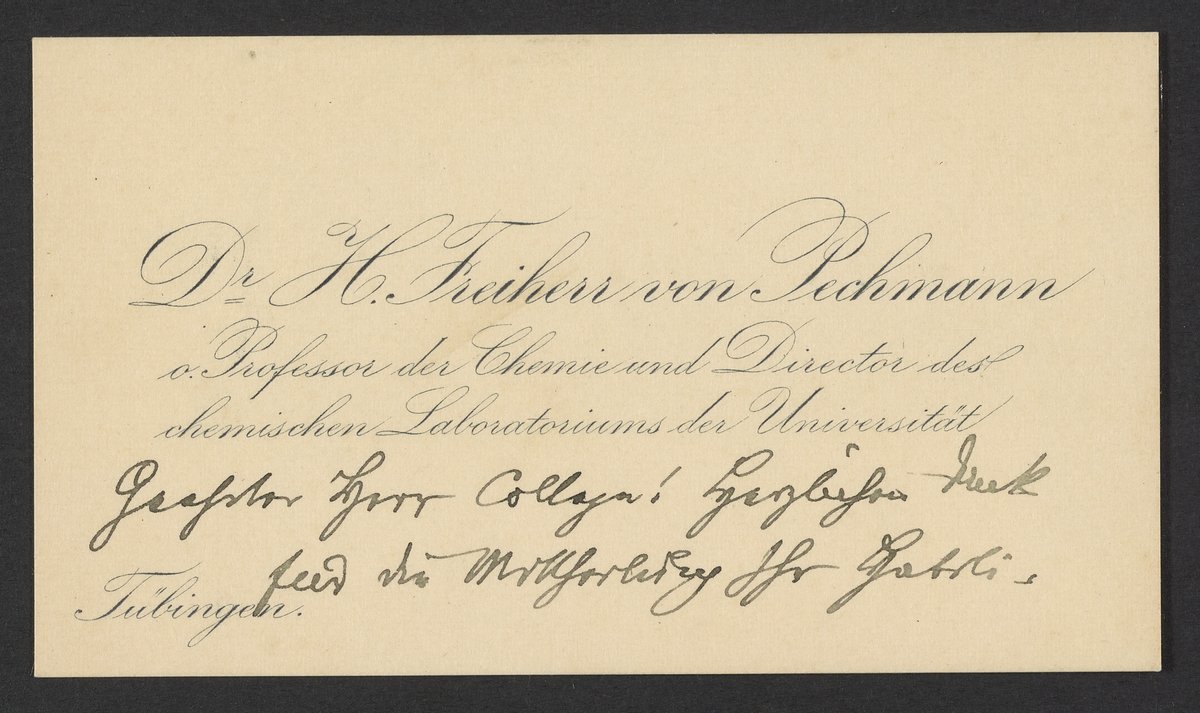 Dr. H. Freiherr von Pechmann
o. Professor der Chemie und Director des
chemischen Laboratoriums der Universität
Geehrter Herr College! Herzlichen Dank
für die Mittheilung Ihr
Tübingen.